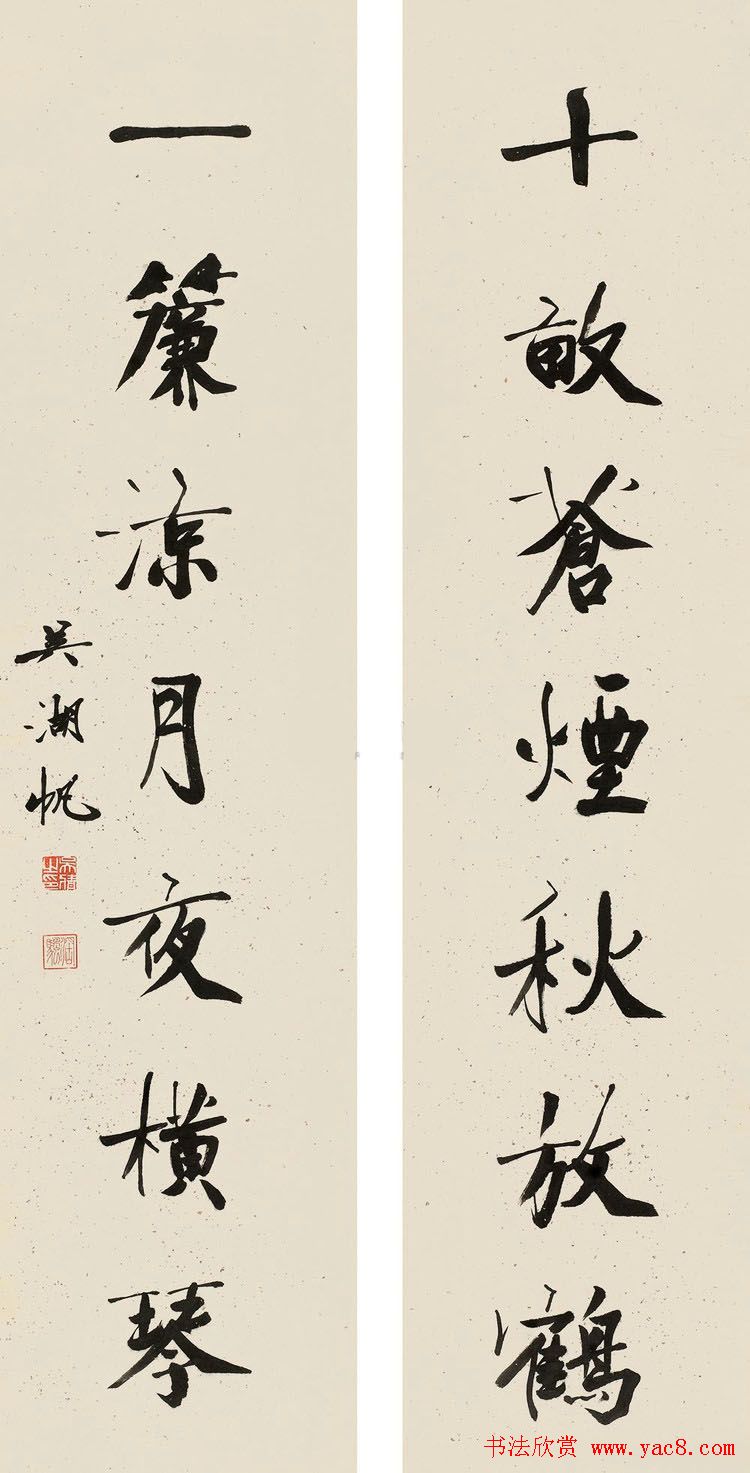 十畝蒼煙秋放鶴
一簾涼月夜橫琴
吳湖帆
书法欣赏 www.yac8.com